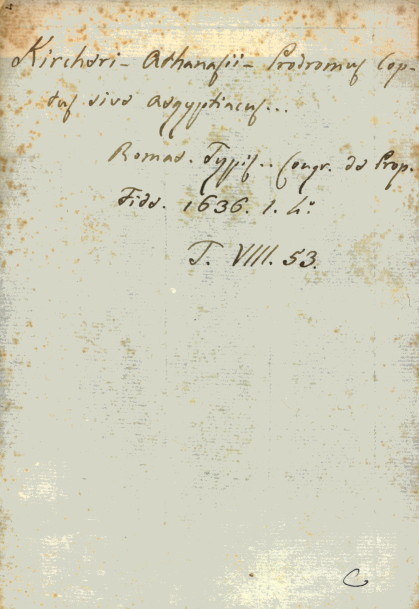 Kircheri - Athanasii - Prodromus Cop-
tus sive Aegyptiacus...
Romae. Typis.. Congr. de Prop.
Fide. 1636. 1. 4°.
T. VIII. 53.
C